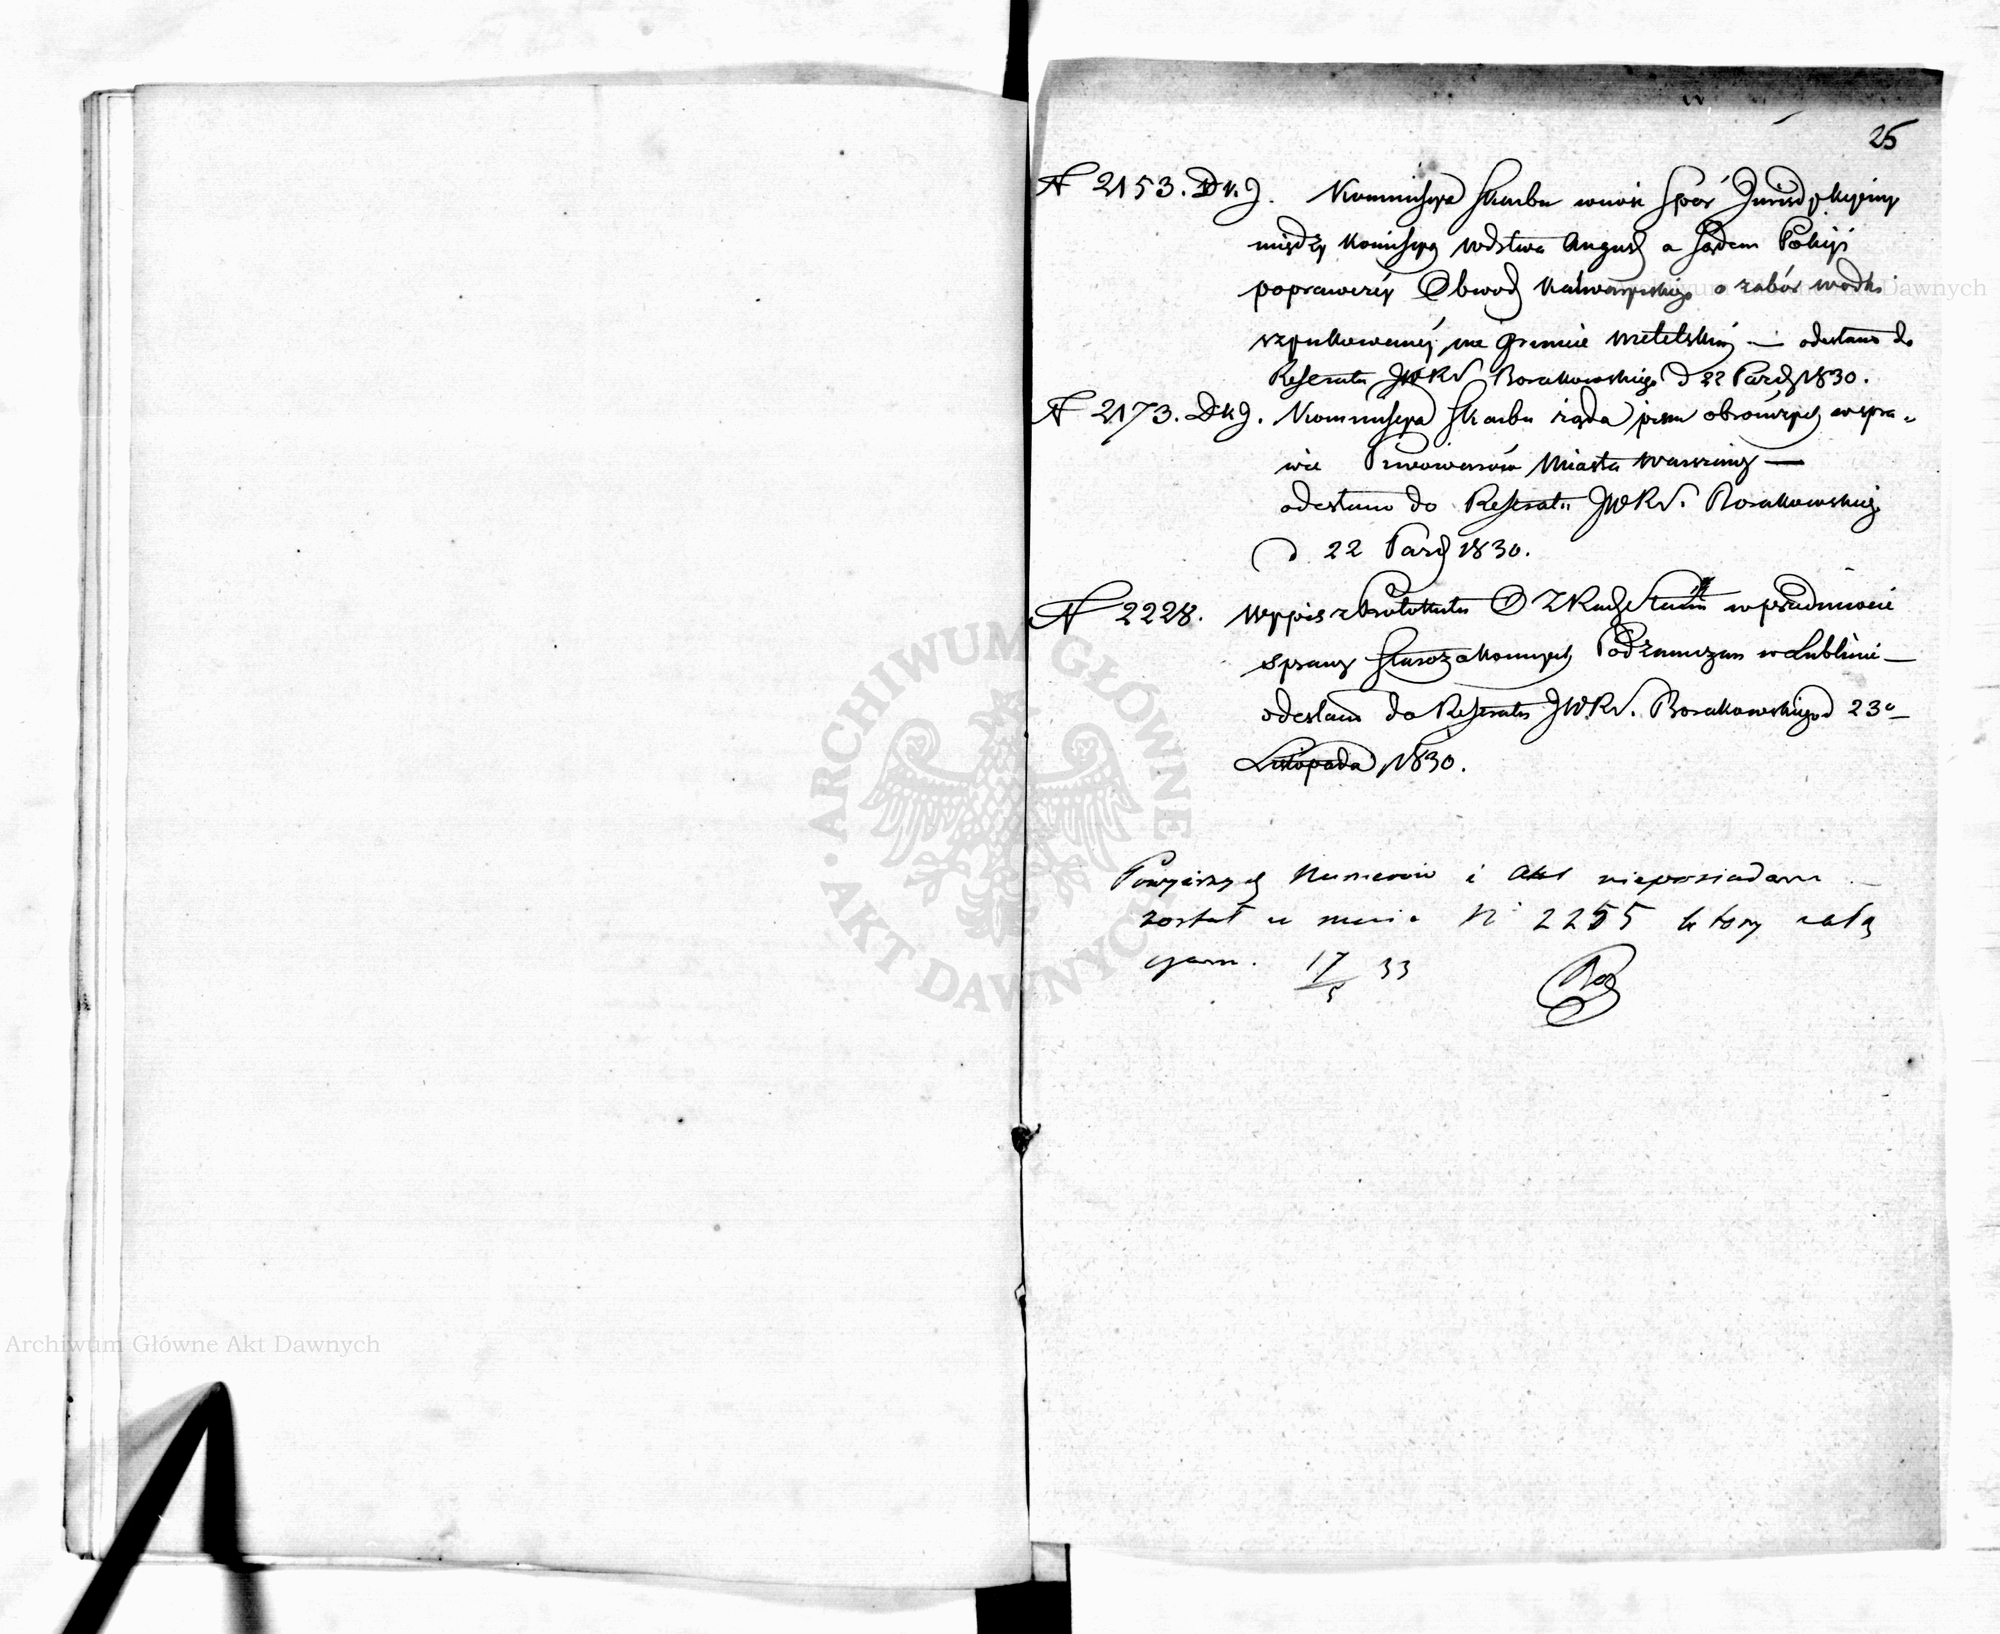 25
N 2153. D.K.J. Kommissya Skarbu wnosi Spór Jurisdykcyiny
między Komissyą Wdztwa August a Sądem Policyi
poprawczéy Obwod Kalwaryiskiego o zabór wódki
na gruncie Metelskim — odesłano do
Referatu JWRN Borakowskiego d 22 Paźd 1830.
N 2173. D.K.J. Kommissya Skarbu żąda pism obrończych w spra-
wie Piwowarów Miasta Warszawy —
odesłano do Referatu JWRN. Borakowskieg
d. 22 Paźd 1830.
N 2228. Wypis z Protokułu O Z Rady Stanu w przedmiocie
sprawy Starozakonnych Podzamczan w Lublinie —
odesłano do Referatu JWRN. Borakowskiego d 23o
Listopada 1830.
Powyższych Numerów i Akt nieposiadam
został u mnie N 2255 który
17/5 33
ARCHIWUM GŁÓWNE AKT DAWNYCH
Archiwum Główne Akt Dawnych
Archiwum Główne Akt Dawnych